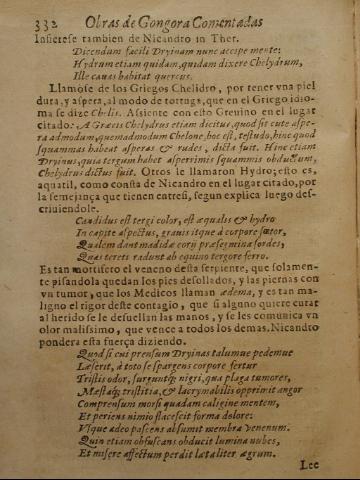 332 Obras de Gongora Comentadas
Infierese tambien de Nicandro in Ther.
Dicendum facili Dryinam nunc accipe mente:
Hydrum etiam quidam, quidam dixere Chelydrum,
Ille cavas habitat quercus.
Llamose de los Griegos Chelidro, por tener vna piel
dura, y aspera, al modo de tortuga, que en el Griego idio-
ma se dize Chelis. Assiente con esto Grevino en el lugar
citado: A Græcis Chelydrus etiam dicitur, quod sit cute aspe-
ra admodum, quemadmodum Chelone, hoc est, testudo, hinc quod
squammas habeat asperas & rudes, dicta fuit. Hinc etiam
Dryinus, quia tergum habet asperrimis squammis obductum,
Chelydrus dictus fuit. Otros le llamaron Hydro; esto es,
aquatil, como consta de Nicandro en el lugar citado, por
la semejança que tienen entresi, segun explica luego des-
criuiendole.
Candidus est tergi color, est æqualis & hydro
In capite aspectus, grauis itque à corpore fœtor,
Qualem dant madidæ corij præsegmina sordes,
Quas tereris radunt ab equino tergore ferro.
Es tan mortifero el veneno desta serpiente, que solamen-
te pisandola quedan los pies desollados, y las piernas con
vn tumor, que los Medicos llaman œdema, y es tan ma-
ligno el rigor deste contagio, que si alguno quiere curar
al herido se le desuellan las manos, y se les comunica vn
olor malissimo, que vence a todos los demas. Nicandro
pondera esta fuerça diziendo.
Quod si cui prensum Dryinas talumue pedemue
Læserit, à toto se spargens corpore fertur
Tristis odor, surguntq; nigri, qua plaga tumores,
Mæstaq; tristitia, & lacrymabilis opprimit angor
Comprensum morsi quadam caligine mentem,
Et periens nimio flaccescit forma dolore:
Vsque adeo pascens absumit membra venenum.
Quin etiam obfuscans obducit lumina nubes,
Et misere affectum perdit lataliter ægrum.
Lee